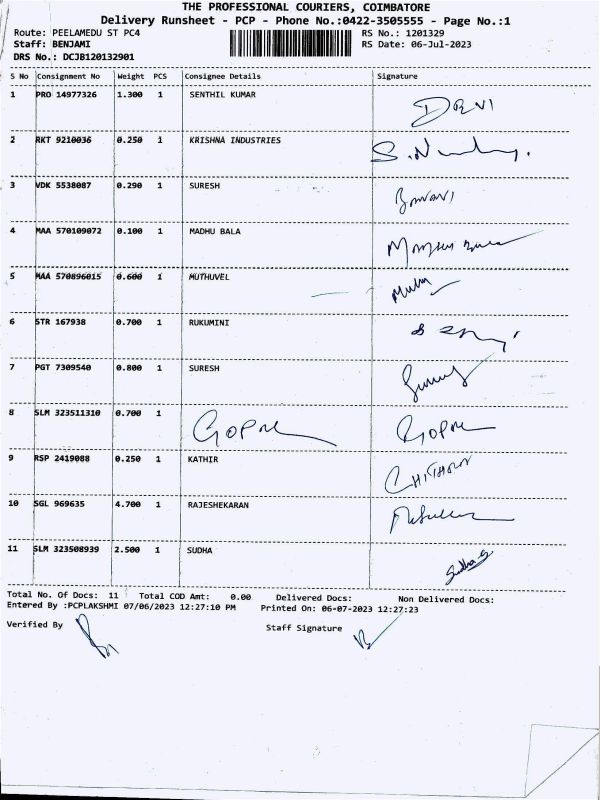 THE PROFESSIONAL COURIERS, COIMBATORE
Delivery Runsheet - PCP - Phone No.:0422-3505555 - Page No.:1
Route: PEELAMEDU ST PC4 RS No.: 1201329
Staff: BENJAMI RS Date: 06-Jul-2023
DRS No.: DCJB120132901
S No Consignment No Weight PCS Consignee Details Signature
1 PRO 14977326 1.300 1 SENTHIL KUMAR DEVI
2 RKT 9210036 0.250 1 KRISHNA INDUSTRIES
3 VDK 5538087 0.290 1 SURESH
4 MAA 570109072 0.100 1 MADHU BALA
5 MAA 570896015 0.600 1 MUTHUVEL
6 STR 167938 0.700 1 RUKUMINI
7 PGT 7309540 0.800 1 SURESH
8 SLM 323511310 0.700 1 GOPAL GOPAL
9 RSP 2419088 0.250 1 KATHIR
10 SGL 969635 4.700 1 RAJESHEKARAN
11 SLM 323508939 2.500 1 SUDHA Sudha S
Total No. Of Docs: 11 Total COD Amt: 0.00 Delivered Docs: Non Delivered Docs:
Entered By :PCPLAKSHMI 07/06/2023 12:27:10 PM Printed On: 06-07-2023 12:27:23
Verified By Staff Signature